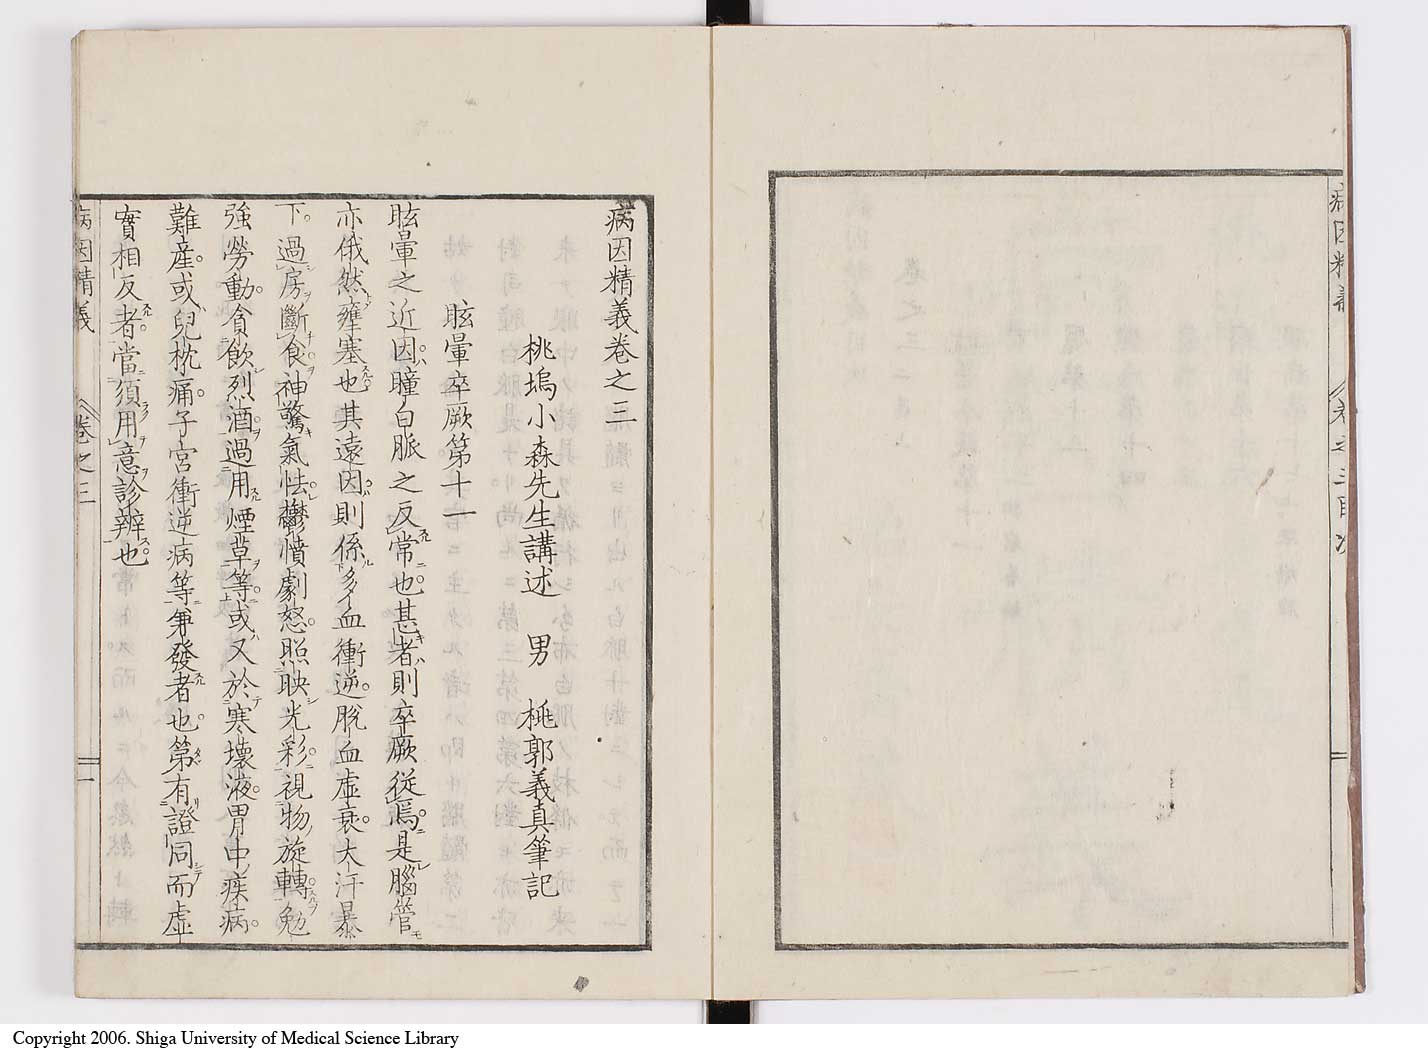 病因精義 卷之三目次
病因精義卷之三
桃塢小森先生講述 男 桃郭義真筆記
眩暈卒厥第十一
眩暈之近因瞳白脈之反常也甚者則卒厥從焉是腦管
亦俄然壅塞也其遠因則係多血衝逆脫血虛衰大汗暴
下過房斷食神驚氣怯鬱憤劇怒照映光彩視物旋轉勉
強勞動貪飮烈酒過用煙草等或又於寒壞液胃中疾病
難產或兒枕痛子宮衝逆病等第發者也第有證同而虛
實相反者當須用意診辨也
病因精義 卷之三 一
Copyright 2006. Shiga University of Medical Science Library